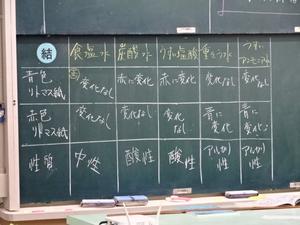 結 食塩水 炭酸水 うすい塩酸 重そう水 うすいアンモニア水
青色リトマス紙 変化なし 赤に変化 赤に変化 変化なし 変化なし
赤色リトマス紙 変化なし 変化なし 変化なし 青に変化 青に変化
性質 中性 酸性 酸性 アルカリ性 アルカリ性